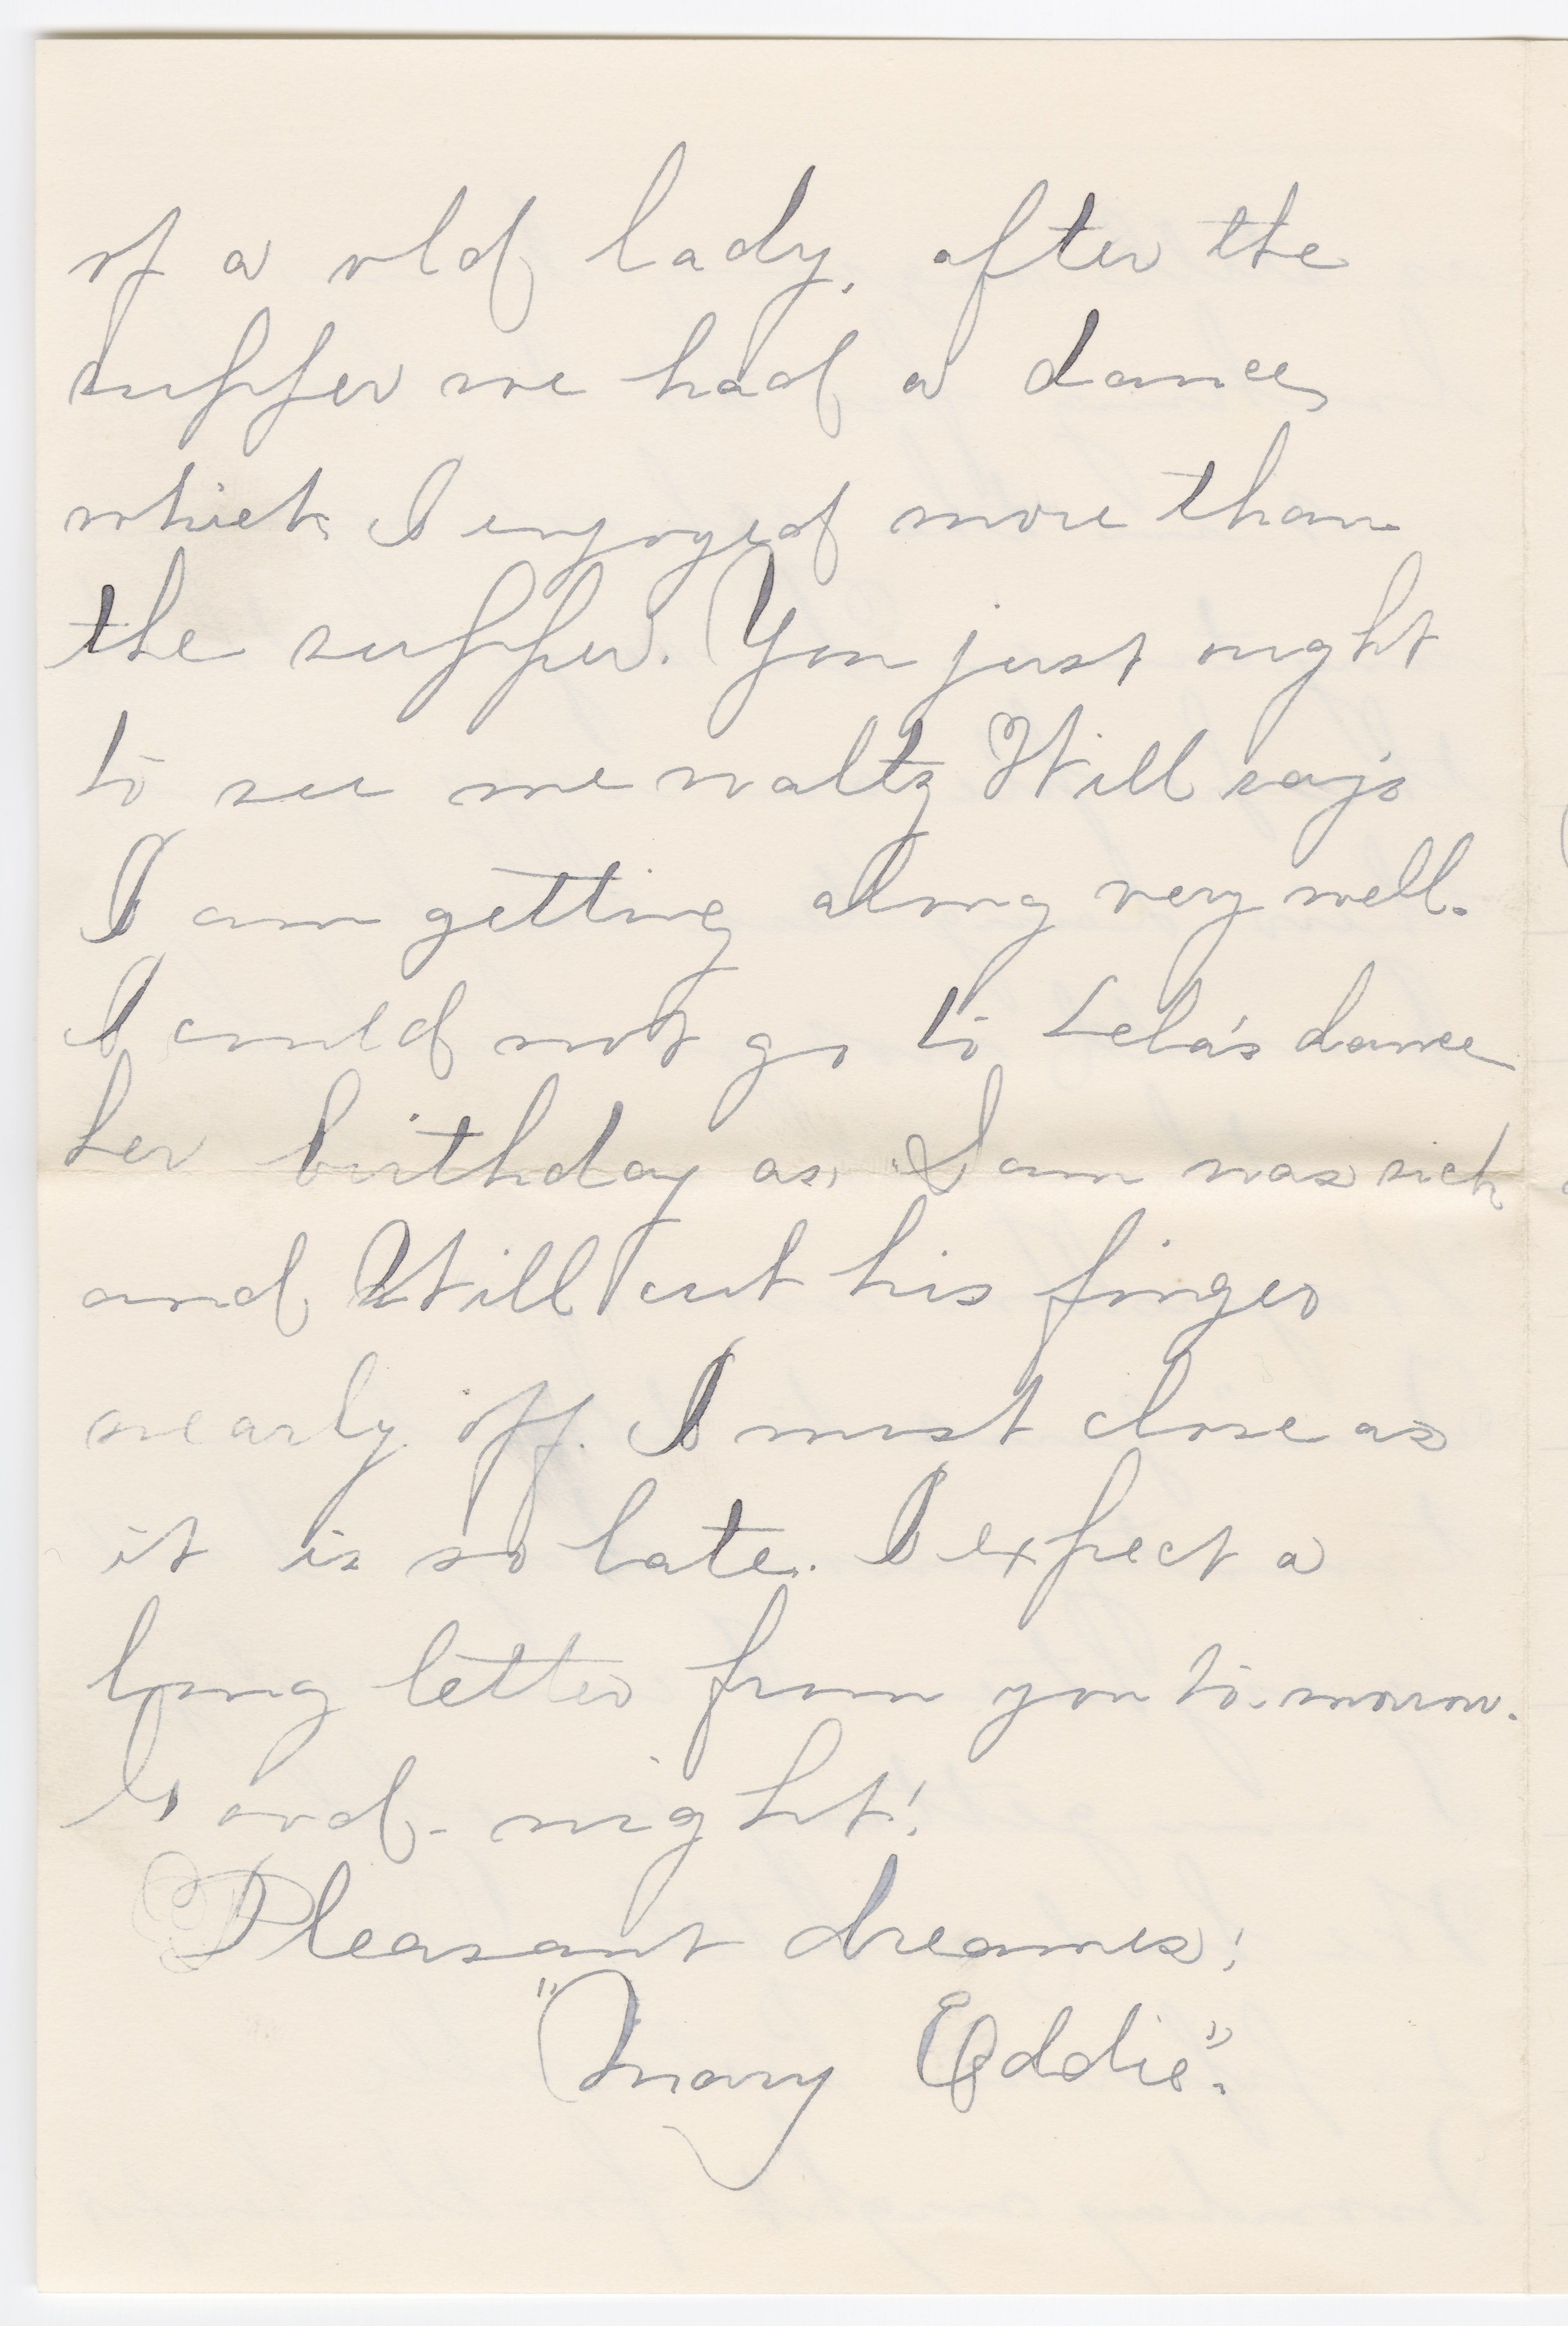 of a old lady, after the
supper we had a dance,
which I enjoyed more than
the supper. You just ought
to see me waltz Will says
I am getting along very well.
I could not go to Lela's dance
her birthday as Sam was sick
and Will cut his finger
nearly off. I must close as
it is so late. I expect a
long letter from you to-morrow.
Good-night!
Pleasant dreams!
"Mary Eddie".